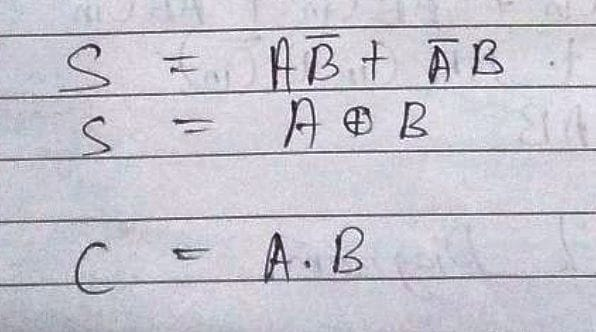 S = AB̅ + A̅B
S = A ⊕ B
C = A.B